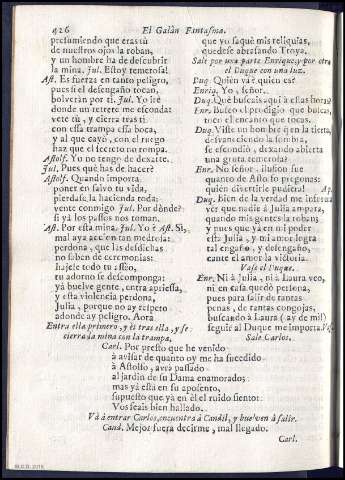 426
El Galán Fantasma.
presumiendo que eras tù
de nuestros ojos la roban,
y un hombre ha de descubrir
la mina. Jul. Estoy temerosa!
Ast. Es fuerza en tanto peligro,
pues si el desengaño tocan,
bolverán por ti. Jul. Yo iré
donde un retrete me esconda:
vete tù, y cierra tras ti
con essa trampa essa boca,
y al que cayó, con el ruego
haz que el secreto no rompa.
Astolf. Yo no tengo de dexarte.
Jul. Pues què has de hacer?
Astolf. Quando importa
poner en salvo tu vida,
pierdase la hacienda toda;
vente conmigo. Jul. Por dónde?
si yá los passos nos toman.
Ast. Por esta mina. Jul. Yo? Ast. Si,
perdona, que las desdichas
no saben de ceremonias:
tu adorno te descomponga:
yá buelve gente, entra apriessa,
y esta violencia perdona,
Julia, porque no ay respeto
adonde ay peligro. Aora
Entra ella primero, y èl tras ella, y se
cierra la mina con la trampa.
Carl. Por presto que he venido
à avisar de quanto oy me ha sucedido
à Astolfo, avrá passado
al jardin de su Dama enamorado;
mas yá está en su aposento,
supuesto que ya en èl el ruido siento:
Vos seais bien hallado.
Vá à entrar Carlos, encuentra à Candil, y buelven à salir.
Cand. Mejor fuera decirme, mal llegado.
Carl.
que yo saquè mis reliquias,
quedese abrasando Troya.
Sale por una parte Enrique, y por otra
el Duque con una luz.
Duq. Quien vá? quien es?
Enriq. Yo, señor.
Duq. Què buscais aqui à estas horas?
Enr. Busco el prodigio que buscas,
toco el encanto que tocas.
Duq. Viste un hombre que en la tierra,
desvaneciendo la sombra,
se escondió, dexando abierta
una gruta temerosa?
Enr. No señor, ilusion fue
quanto de Astolfo pregonas:
quien divertirle pudiera! Ap.
Duq. Bien de la verdad me informa
ver que nadie à Julia ampara,
quando mis gentes la roban;
y pues que yá en mi poder
està Julia, y mi amor logra
tal engaño, y desengaño,
cante el amor la victoria.
Vase el Duque.
Enr. Ni à Julia, ni à Laura veo,
ni en casa quedó persona,
pues para salir de tantas
penas, de tantas congojas,
buscando à Laura (ay de mi!)
seguir al Duque me importa. Vase
Sale Carlos.